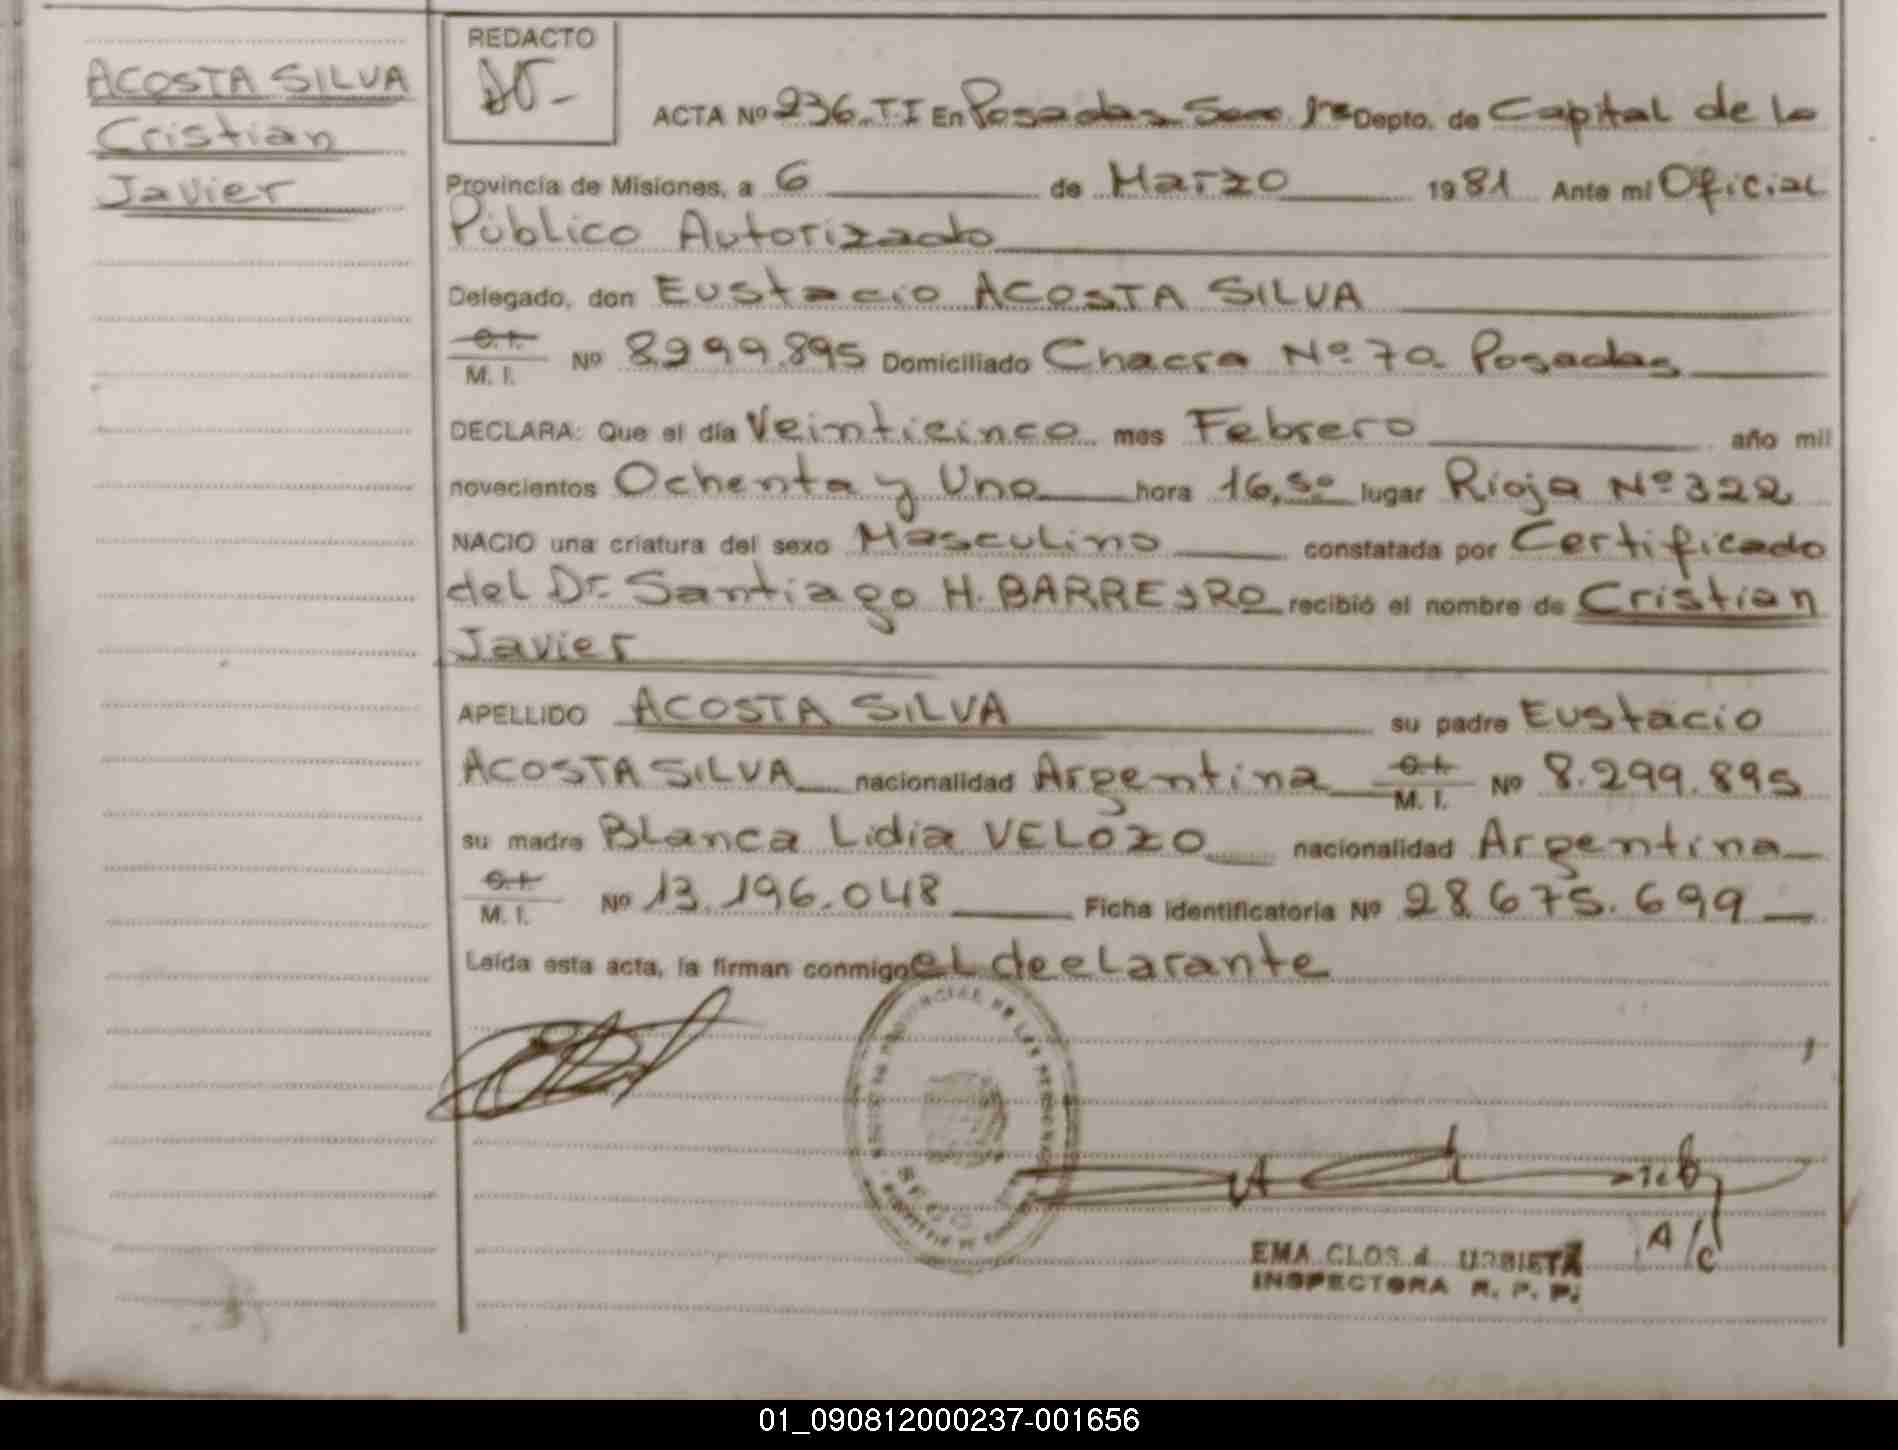 ACOSTA SILVA
Cristian
Javier
REDACTO
ACTA Nº 236. T.I En Posadas Secc 1ra Depto. de Capital de la
Provincia de Misiones, a 6 de Marzo 1981 Ante mi Oficial
Público Autorizado
Delegado, don Eustacio ACOSTA SILVA
C.I.
M. I. Nº 8.299.895 Domiciliado Chacra Nº 70 Posadas
DECLARA: Que el día Veinticinco mes Febrero año mil
novecientos Ochenta y Uno hora 16,50 lugar Rioja Nº 322
NACIO una criatura del sexo Masculino constatada por Certificado
del Dr. Santiago H. BARREIRO recibió el nombre de Cristian
Javier
APELLIDO ACOSTA SILVA su padre Eustacio
ACOSTA SILVA nacionalidad Argentina C.I. M. I. Nº 8.299.895
su madre Blanca Lidia VELOZO nacionalidad Argentina
C.I.
M. I. Nº 13.196.048 Ficha identificatoria Nº 28.675.699
Leída esta acta, la firman conmigo el declarante
A/C
EMA CLOS d URBIETA
INSPECTORA R. P. P.
01_090812000237-001656